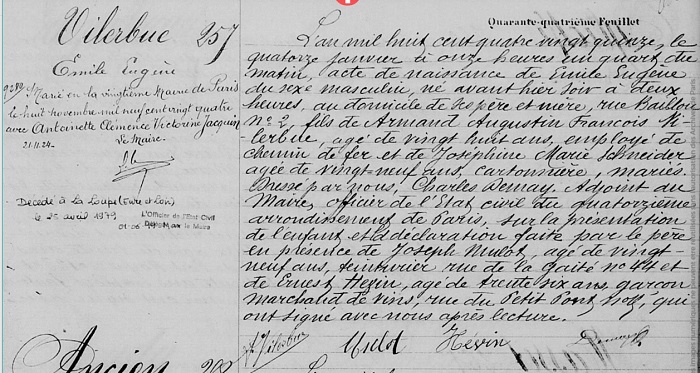 Quarante-quatrième Feuillet
Vilerbue 257
Emile Eugène
Marié en la vingtième Mairie de Paris
le huit novembre mil neuf cent vingt quatre
avec Antoinette Clemence Victorine Jacquin
21.11.24. Le Maire.
Décédé à la Loupe (Eure et Loir)
le 25 avril 1979
L'Officier de l'Etat Civil
L'an mil huit cent quatre vingt quinze, le
quatorze janvier à onze heures un quart du
matin, acte de naissance de Emile Eugène
du sexe masculin, né avant hier soir à deux
heures, au domicile de ses père et mère, rue
no 3, fils de Armand Augustin François Vi-
lerbue, agé de vingt huit ans, employé de
chemin de fer et de Joséphine Marie Schneider
agée de vingt-neuf ans, cartonnière, mariés.
Dressé par nous, Charles Adjoint au
Maire, officier de l'Etat civil du quatorzième
arrondissement de Paris, sur la présentation
de l'enfant et la déclaration faite par le père
en présence de Joseph Mulot, agé de vingt-
neuf ans, teinturier rue de la gaité no 44 et
de Ernest Hévin, agé de trente six ans, garçon
marchand de vins, rue du Petit Pont qui
ont signé avec nous après lecture.
Vilerbue Mulot Hévin
Ancien